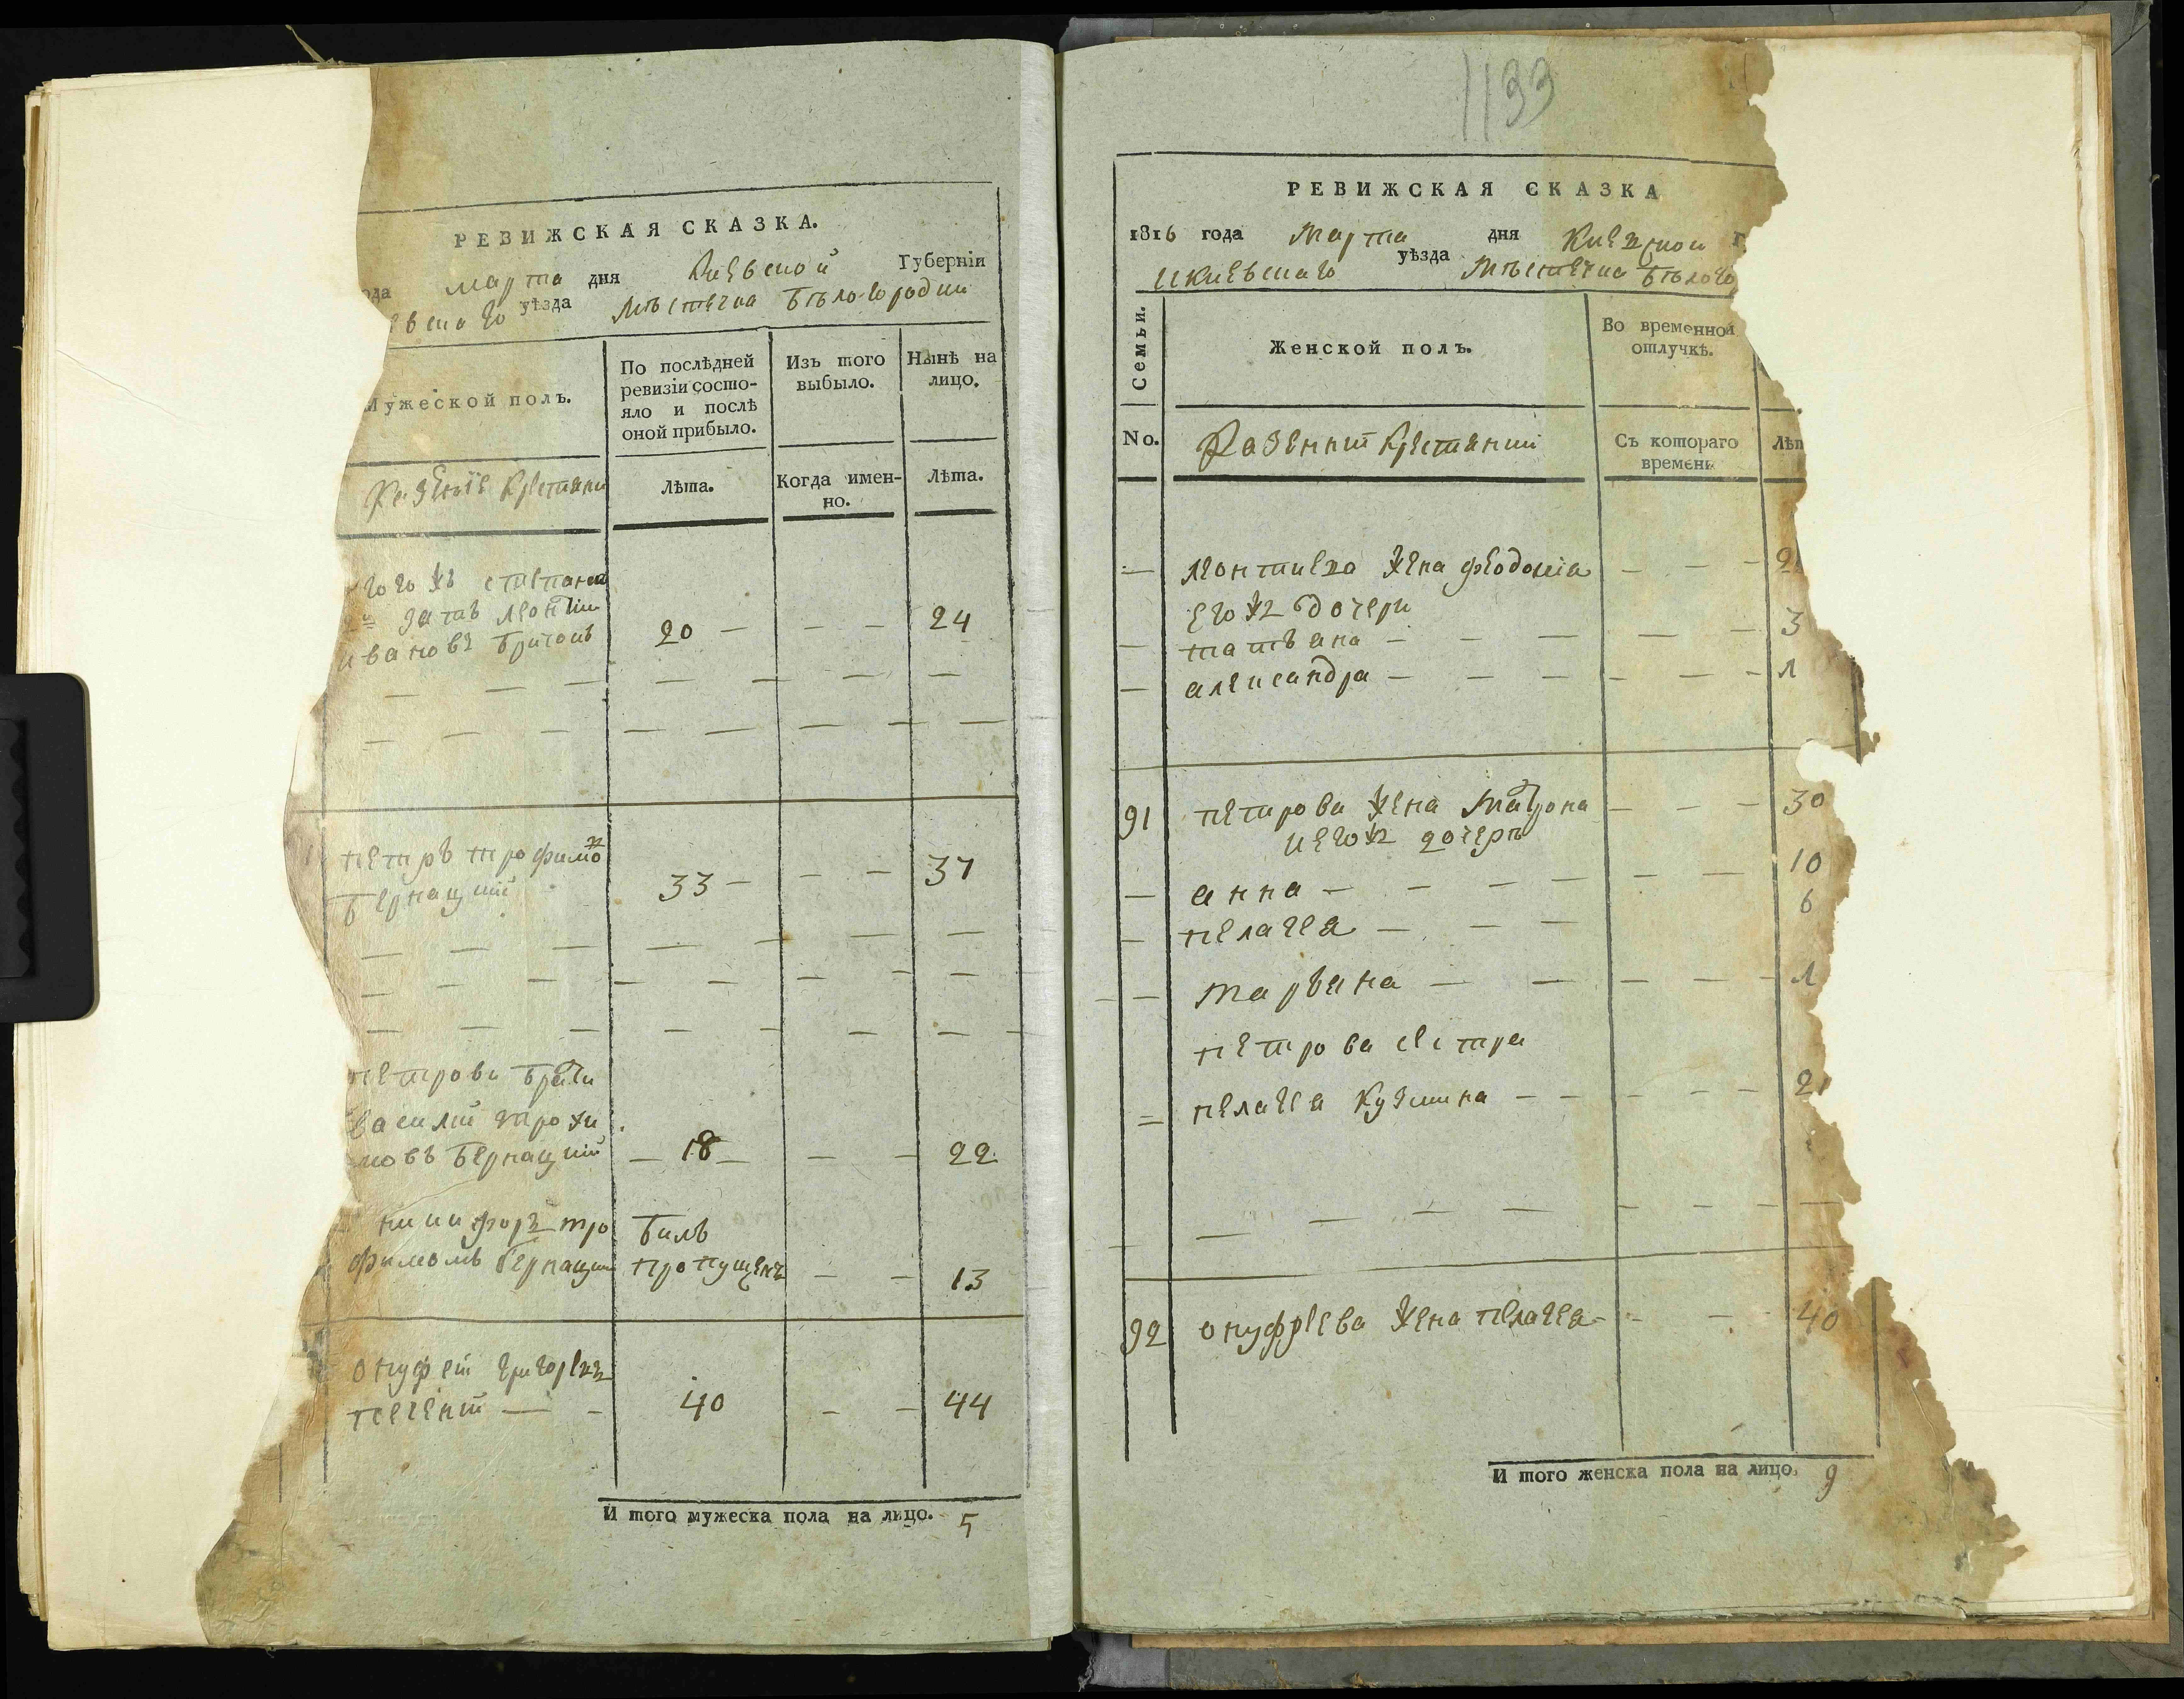 РЕВИЖСКАЯ СКАЗКА.
ода марта дня Киевской Губерніи
евскаго уѣзда Мѣстечка Бѣлогородки
Мужеской полъ.
По послѣдней ревизіи состо-
яло и послѣ
оной прибыло.
Изъ того выбыло.
Нынѣ на лицо.
Казеніе Крестяни
Лѣта.
Когда имен-
но.
Лѣта.
того жъ степана
зять леонтій
ивановъ 20 — — — 24
петръ трофимовъ
Бернацкій 33 — — — 37
петрови брати
василій трохи
мовъ Бернацкій — 18 — — — 22
никифоръ тро билъ
фимовъ Бернацкий пропущенъ — — 13
онуфрій григориевъ
40 — — 44
И того мужеска пола на лицо. 5
1133
РЕВИЖСКАЯ СКАЗКА
1816 года Марта дня Киевской Г
и Киевскаго уѣзда Мѣстечка Бѣлого
Семьи.
Женской полъ.
Во временной
отлучкѣ.
No.
Казенній Крестянки
Съ котораго
времени
Лѣт
— леонтиева жена феодосіа — — — 2
его жъ дочери
— татьяна — — — — — 3
— александра — — — — — — 1
91 петрова жена Матрона — — — 30
и его жъ дочеры
— анна — — — — — — 10
— пелагея — — — 6
— Маръяна — — — — — 1
петрова сестра
= пелагея Кузмина — — — — — 2
92 онуфриева жена пелагея — — — 40
И того женска пола на лицо. 9